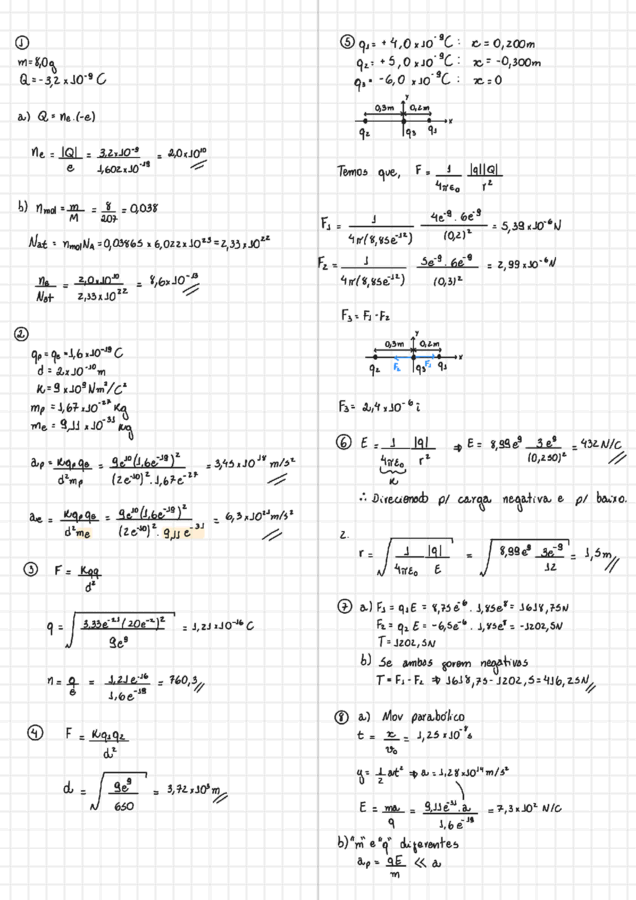 ①
m=8,0g
Q=-3,2 x 10⁻⁹ C
a) Q = nₑ.(-e)
nₑ = |Q|/e = 3,2x10⁻⁹/1,602x10⁻¹⁹ = 2,0x10¹⁰
b) nmol = m/M = 8/207 = 0,038
Nat = nmol NA = 0,03865 x 6,022x10²³ = 2,33x10²²
nₑ/Nat = 2,0x10¹⁰/2,33x10²² = 8,6x10⁻¹³
②
qp = qe = 1,6x10⁻¹⁹ C
d = 2x10⁻¹⁰ m
K = 9x10⁹ Nm²/C²
mp = 1,67x10⁻²⁷ Kg
me = 9,11 x10⁻³¹ Kg
ap = Kqpqe/d²mp = 9e¹⁰(1,6e⁻¹⁹)²/(2e⁻¹⁰)².1,67e⁻²⁷ = 3,45x10¹⁸ m/s²
ae = Kqpqe/d²me = 9e¹⁰(1,6e⁻¹⁹)²/(2e⁻¹⁰)².9,11e⁻³¹ = 6,3x10²¹ m/s²
③ F = Kqq/d²
q = √(3,33e⁻²¹(20e⁻²)²/9e⁹) = 1,21x10⁻¹⁶ C
n = q/e = 1,21e⁻¹⁶/1,6e⁻¹⁹ = 760,3
④ F = Kq₁q₂/d²
d = √(9e⁹/650) = 3,72x10³ m
⑤ q₁ = +4,0x10⁻⁹C : x = 0,200m
q₂ = +5,0x10⁻⁹C : x = -0,300m
q₃ = -6,0 x10⁻⁹C : x = 0
y
0,3m 0,2m
x
q₂ q₃ q₁
Temos que, F = 1/4πε₀ |q||Q|/r²
F₁ = 1/4π(8,85e⁻¹²) 4e⁻⁹.6e⁻⁹/(0,2)² = 5,39x10⁻⁶N
F₂ = 1/4π(8,85e⁻¹²) 5e⁻⁹.6e⁻⁹/(0,3)² = 2,99x10⁻⁶N
F₃ = F₁-F₂
y
0,3m 0,2m
x
q₂ F₂ q₃ F₁ q₁
F₃ = 2,4x10⁻⁶ i
⑥ E = 1/4πε₀ |q|/r² ⇒ E = 8,99e⁹ 3e⁻⁹/(0,250)² = 432 N/C
K
∴ Direcionado p/ carga negativa e p/ baixo.
2.
r = √(1/4πε₀ |q|/E) = √(8,99e⁹ 3e⁻⁹/12) = 1,5m
⑦ a) F₁ = q₁E = 8,75e⁻⁶.1,85e⁸ = 1618,75N
F₂ = q₂E = -6,5e⁻⁶.1,85e⁸ = -1202,5N
T = 1202,5N
b) Se ambas forem negativas
T = F₁-F₂ ⇒ 1618,75-1202,5 = 416,25N
⑧ a) Mov parabólico
t = x/v₀ = 1,25x10⁻⁸s
y = 1/2 at² ⇒ a = 1,28x10¹⁴ m/s²
E = ma/q = 9,11e⁻³¹.a/1,6e⁻¹⁹ = 7,3x10² N/C
b) "m" e "q" diferentes
ap = qE/m ≪ a